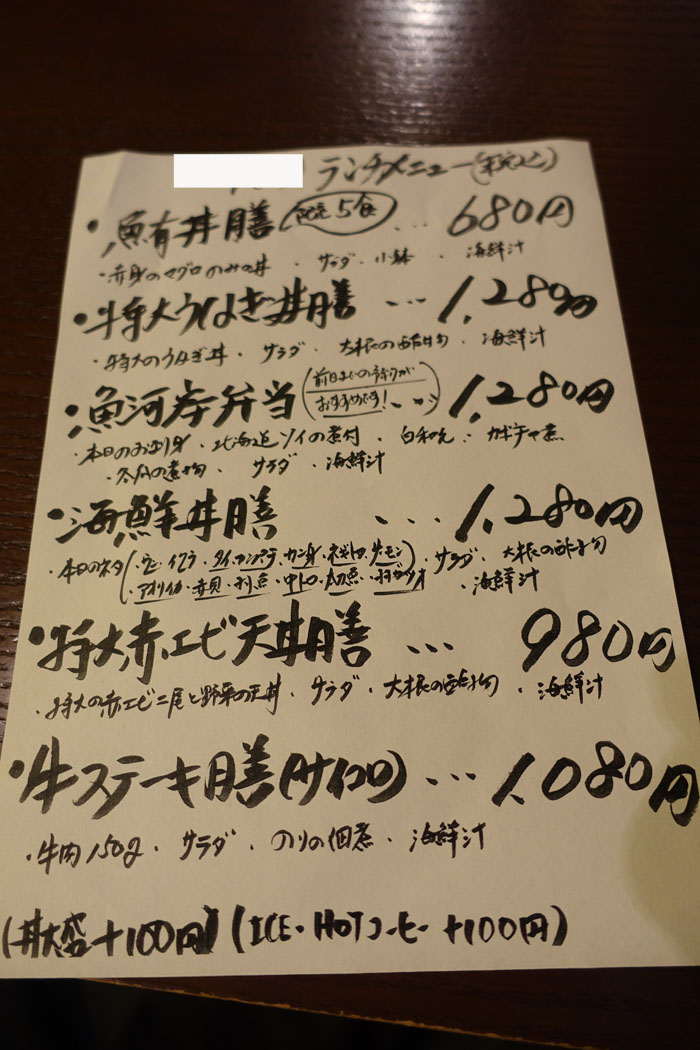 ランチメニュー(税込)
・鮪丼膳 限定5食 ... 680円
・赤身のマグロのみの丼 ・サラダ・小鉢 ・海鮮汁
・特大うなぎ丼膳 ... 1,280円
・特大のうなぎ丼 ・サラダ ・大根の酢物 ・海鮮汁
・魚河岸弁当 (前日までの予約がおすすめです!) ... 1,280円
・本日のお刺身 ・北海道ソイの煮付 ・白和え ・カボチャ煮
・冬瓜の煮物 ・サラダ ・海鮮汁
・海鮮丼膳 ... 1,280円
・本日のネタ(・ウニ・イクラ・タイ・エンガワ・カンパチ・ネギトロ・サーモン ・サラダ ・大根の酢物
・アオリイカ・赤貝・・中トロ・) ・海鮮汁
・特大赤エビ天丼膳 ... 980円
・特大の赤エビ二尾と野菜の天丼 ・サラダ ・大根の酢物 ・海鮮汁
・牛ステーキ膳(サイコロ) ... 1,080円
・牛肉150g ・サラダ ・のりの佃煮 ・海鮮汁
(丼大盛+100円) (ICE・HOTコーヒー +100円)